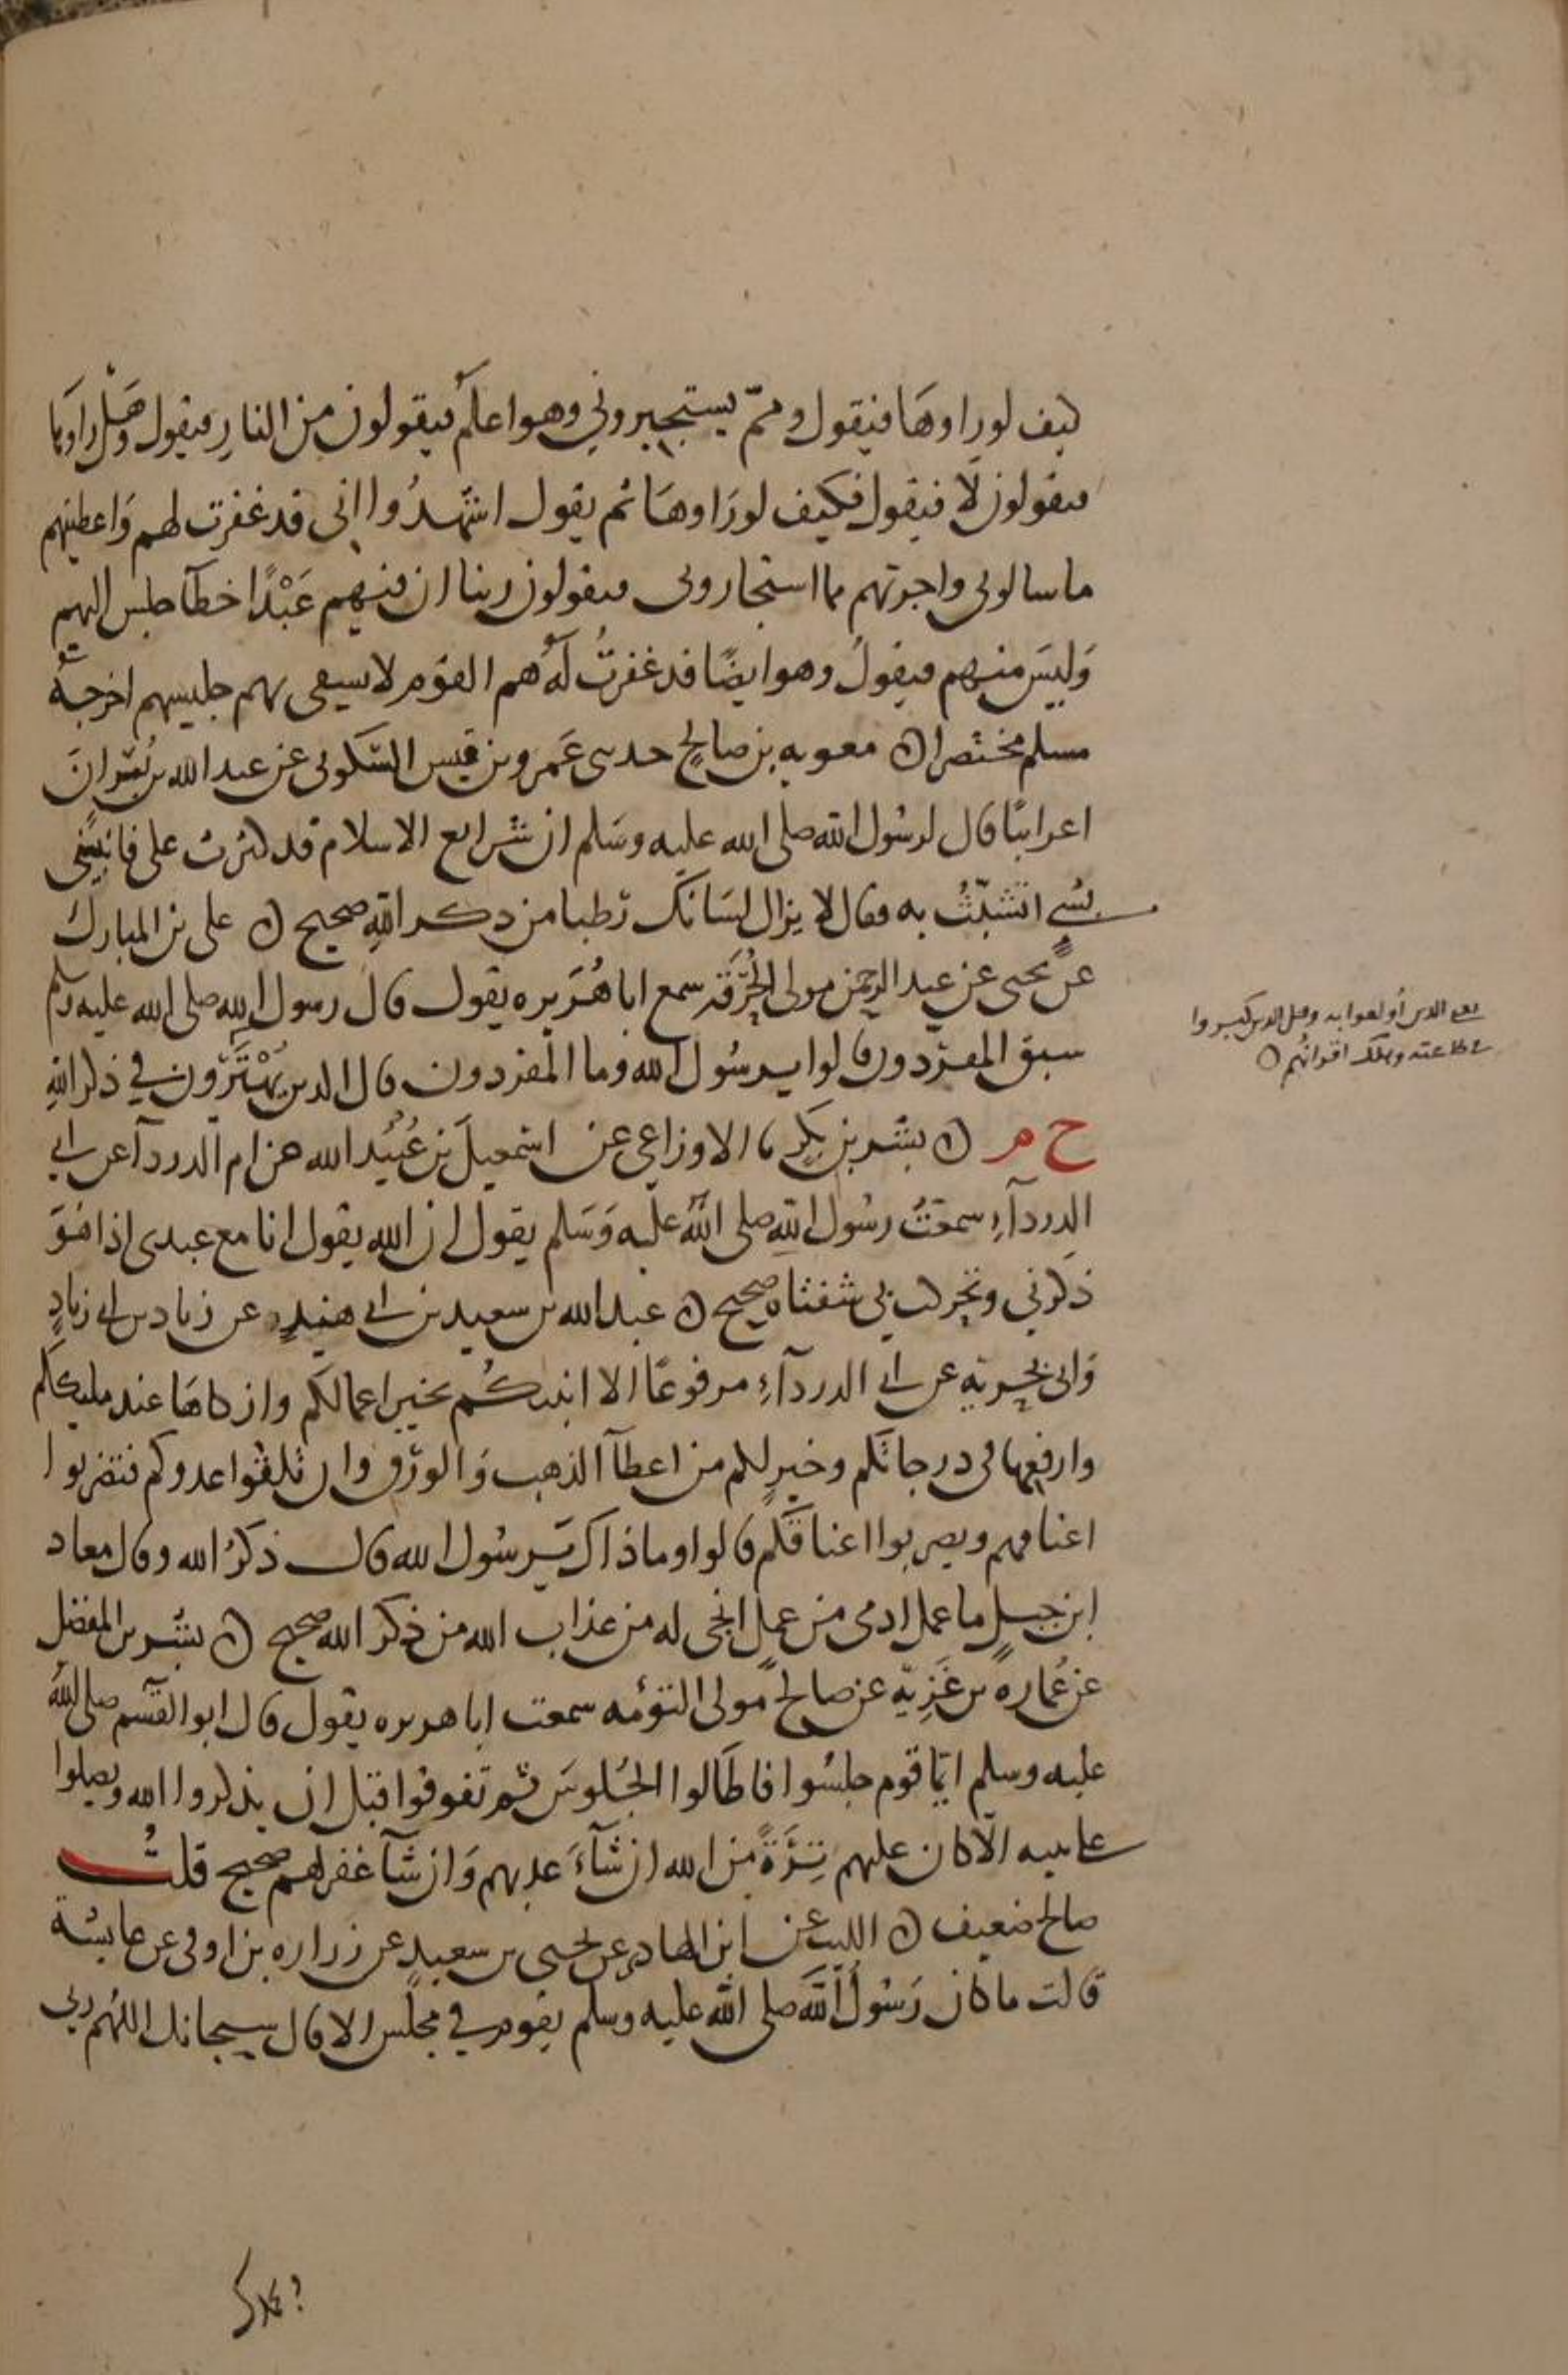 كيف لو راوها فيقول ومم يستجيروني وهو اعلم فيقولون من النار فيقول وهل راوها
فيقولون لا فيقول فكيف لو راوها ثم يقول اشهدوا اني قد غفرت لهم واعطيتهم
ما سالوني واجرتهم مما استجاروني فيقولون ربنا ان فيهم عبدًا خطآ جلس اليهم
وليس منهم فيقول وهو ايضًا قد غفرت له هم القوم لا يشقى بهم جليسهم اخرجه
مسلم مختصرا ن معويه بن صالح حدثني عمرو بن قيس السكوني عن عبد الله بن بسر ان
اعرابيًا قال لرسول الله صلى الله عليه وسلم ان شرايع الاسلام قد كثرت علي فانبيني
بشي اتشبث به فقال لا يزال لسانك رطبا من ذكر الله صحيح ن علي بن المبارك
عن يحيى عن عبد الرحمن مولى الحرقة سمع ابا هريره يقول قال رسول الله صلى الله عليه وسلم
سبق المفردون قالوا يرسول الله وما المفردون قال الذين يهترون في ذكر الله
خ م ن بشر بن بكر نا الاوزاعي عن اسمعيل بن عبيد الله عن ام الدردآ عن ابي
الدردآء سمعت رسول الله صلى الله عليه وسلم يقول ان الله يقول انا مع عبدي اذا هو
ذكرني وتحركت بي شفتاه صحيح ن عبد الله بن سعيد بن ابي هند عن زياد بن ابي زياد
وابي بحرية عن ابي الدردآء مرفوعًا الا انبئكم بخير اعمالكم وازكاها عند مليككم
وارفعها في درجاتكم وخير لكم من اعطآ الذهب والورق وان تلقوا عدوكم فتضربوا
اعناقهم ويضربوا اعناقكم قالوا وما ذاك يرسول الله قال ذكر الله وقال معاذ
ابن جبل ما عمل ادمي من عمل انجى له من عذاب الله من ذكر الله صحيح ن بشر بن المفضل
عن عماره بن غزية عن صالح مولى التوءمه سمعت ابا هريره يقول قال ابو القسم صلى الله
عليه وسلم ايما قوم جلسوا فاطالوا الجلوس ثم تفرقوا قبل ان يذكروا الله ويصلوا
على نبيه الا كان عليهم ترة من الله ان شآء عذبهم وان شآ غفر لهم صحيح قلت
صالح ضعيف ن الليث عن ابن الهاد عن يحيى بن سعيد عن زراره بن اوفى عن عايشة
قالت ما كان رسول الله صلى الله عليه وسلم يقوم في مجلس الا قال سبحانك اللهم ربي
يعني الذين أولعوا به وقيل الذين كبروا
في طاعته وهلك اقرانهم ن